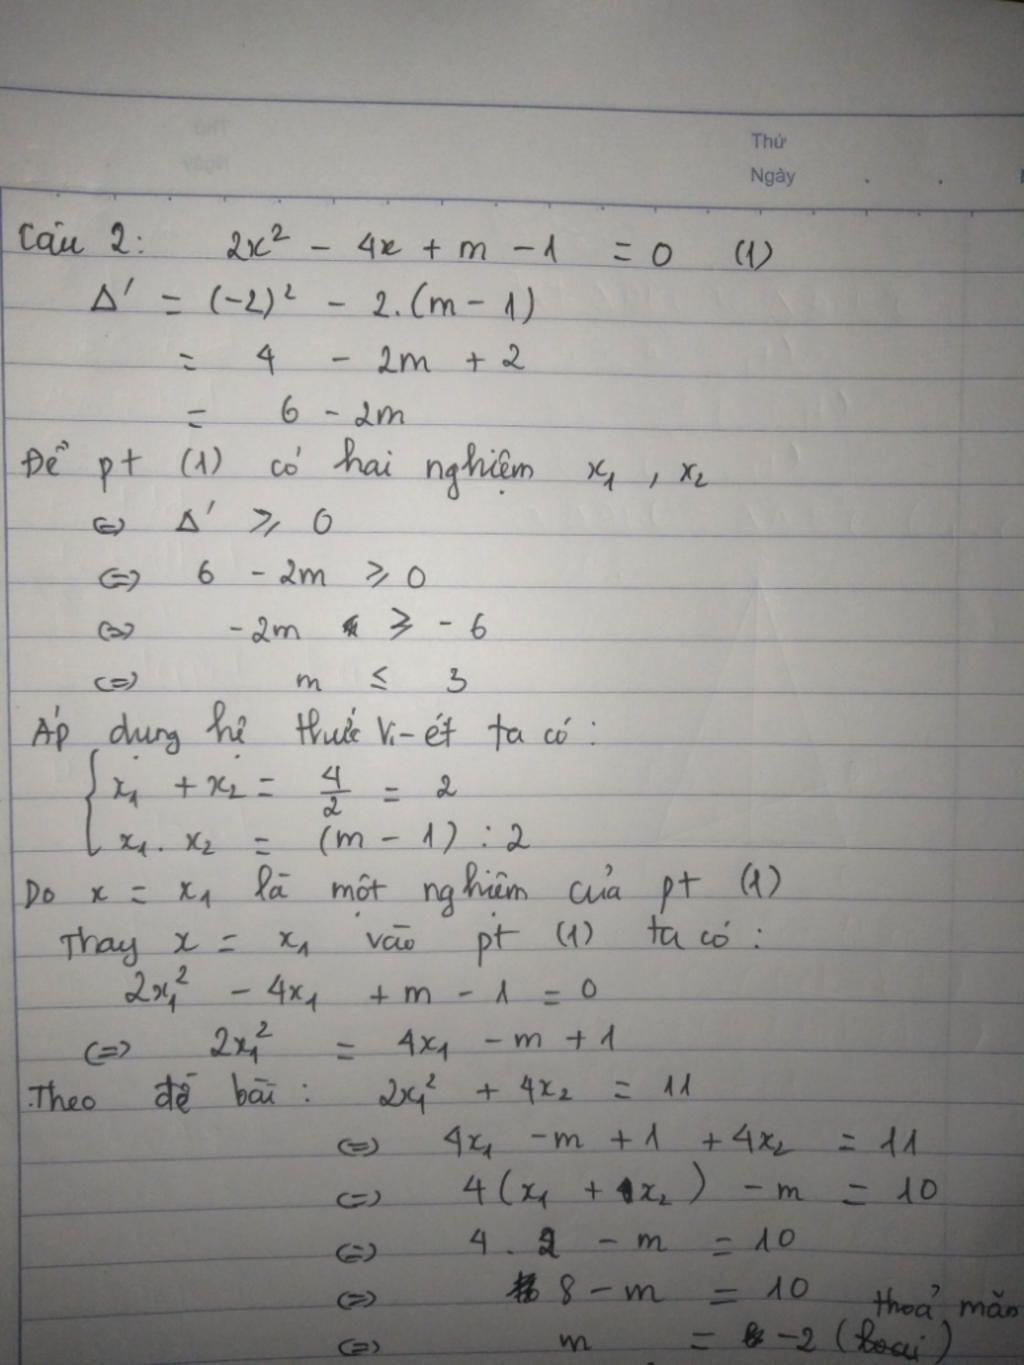 Thứ
Ngày
Câu 2: 2x² - 4x + m - 1 = 0 (1)
Δ' = (-2)² - 2.(m - 1)
= 4 - 2m + 2
= 6 - 2m
Để pt (1) có hai nghiệm x₁, x₂
⇔ Δ' ⩾ 0
⇔ 6 - 2m ⩾ 0
⇔ -2m ⩾ -6
⇔ m ≤ 3
Áp dụng hệ thức Vi-ét ta có:
{ x₁ + x₂ = 4/2 = 2
x₁. x₂ = (m - 1) : 2
Do x = x₁ là một nghiệm của pt (1)
Thay x = x₁ vào pt (1) ta có:
2x₁² - 4x₁ + m - 1 = 0
⇔ 2x₁² = 4x₁ - m + 1
Theo đề bài: 2x₁² + 4x₂ = 11
⇔ 4x₁ - m + 1 + 4x₂ = 11
⇔ 4(x₁ + x₂) - m = 10
⇔ 4. 2 - m = 10
⇔ 8 - m = 10
thoả mãn
⇔ m = -2 (loại)